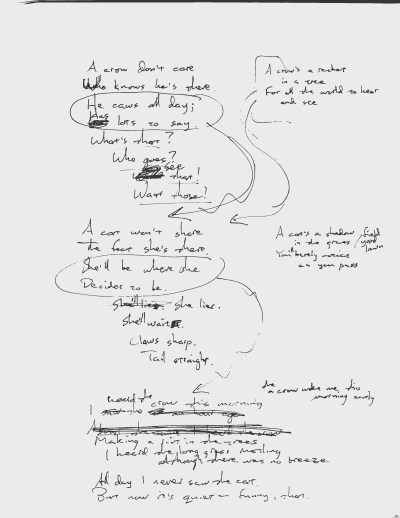 A crow don't care
Who knows he's there.
He caws all day;
Has lots to say
What's that?
Who goes?
see
that!
Want those?
A crow's a racket
in a tree
For all the world to hear
and see
A cat won't share
The fact she's there.
She'll be where she
Decides to be.
She'll lie. She lies.
She'll wait.
Claws sharp.
Tail straight.
A cat's a shadow
in the grass / field yard lawn
You'll barely notice
as you pass
the a crow woke me this
morning early
I heard the crow this morning
Making a din in the trees.
I heard the long grass rustling
although there was no breeze
All day I never saw the cat.
But now it's quiet – funny, that.